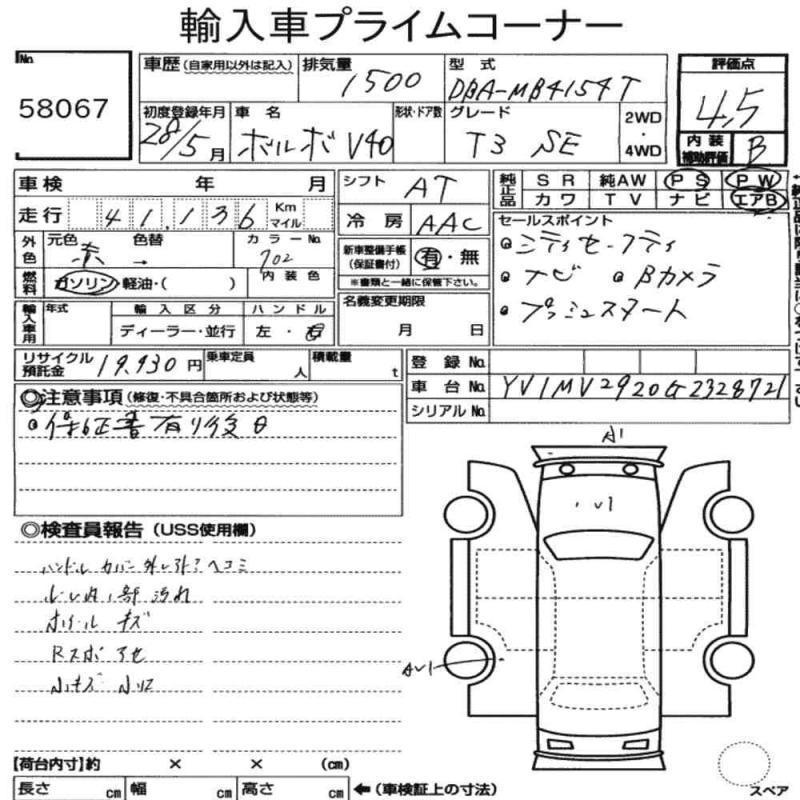 輸入車プライムコーナー
No.
58067
車歴 (自家用以外は記入) 排気量 1500 型式 DBA-MB4154T
評価点 4.5
初度登録年月 28/5月 車名 ボルボ V40 形状・ドア数 グレード T3 SE 2WD・4WD
内装補助評価 B
車検 年 月
シフト AT
純正品 SR 純AW PS PW
カワ TV ナビ エアB
走行 41,136 Km マイル
冷房 AAC
セールスポイント
外色 元色 赤 色替 → カラーNo. 702
新車整備手帳 (保証書付) 有・無
※書類と一緒に保管下さい。
シティセーフティ
燃料 ガソリン・軽油・( ) 内装色
ナビ Bカメラ
名義変更期限
月 日
プッシュスタート
輸入車用 年式 輸入区分 ハンドル
ディーラー・並行 左・右
リサイクル預託金 19,930円 乗車定員 人 積載量 t
登録No.
車台No. YV1MV2920G2328721
シリアルNo.
◎注意事項 (修復・不具合箇所および状態等)
保証書有り後日
A1
◎検査員報告 (USS使用欄)
ハンドル カバー 外し引キズ ヘコミ
ルーム内1部汚れ
ホイール キズ
Rスポ アセ
小キズ 小凹
UV1
AU1
【荷台内寸】約 × × (cm)
長さ cm 幅 cm 高さ cm ← (車検証上の寸法)
スペア